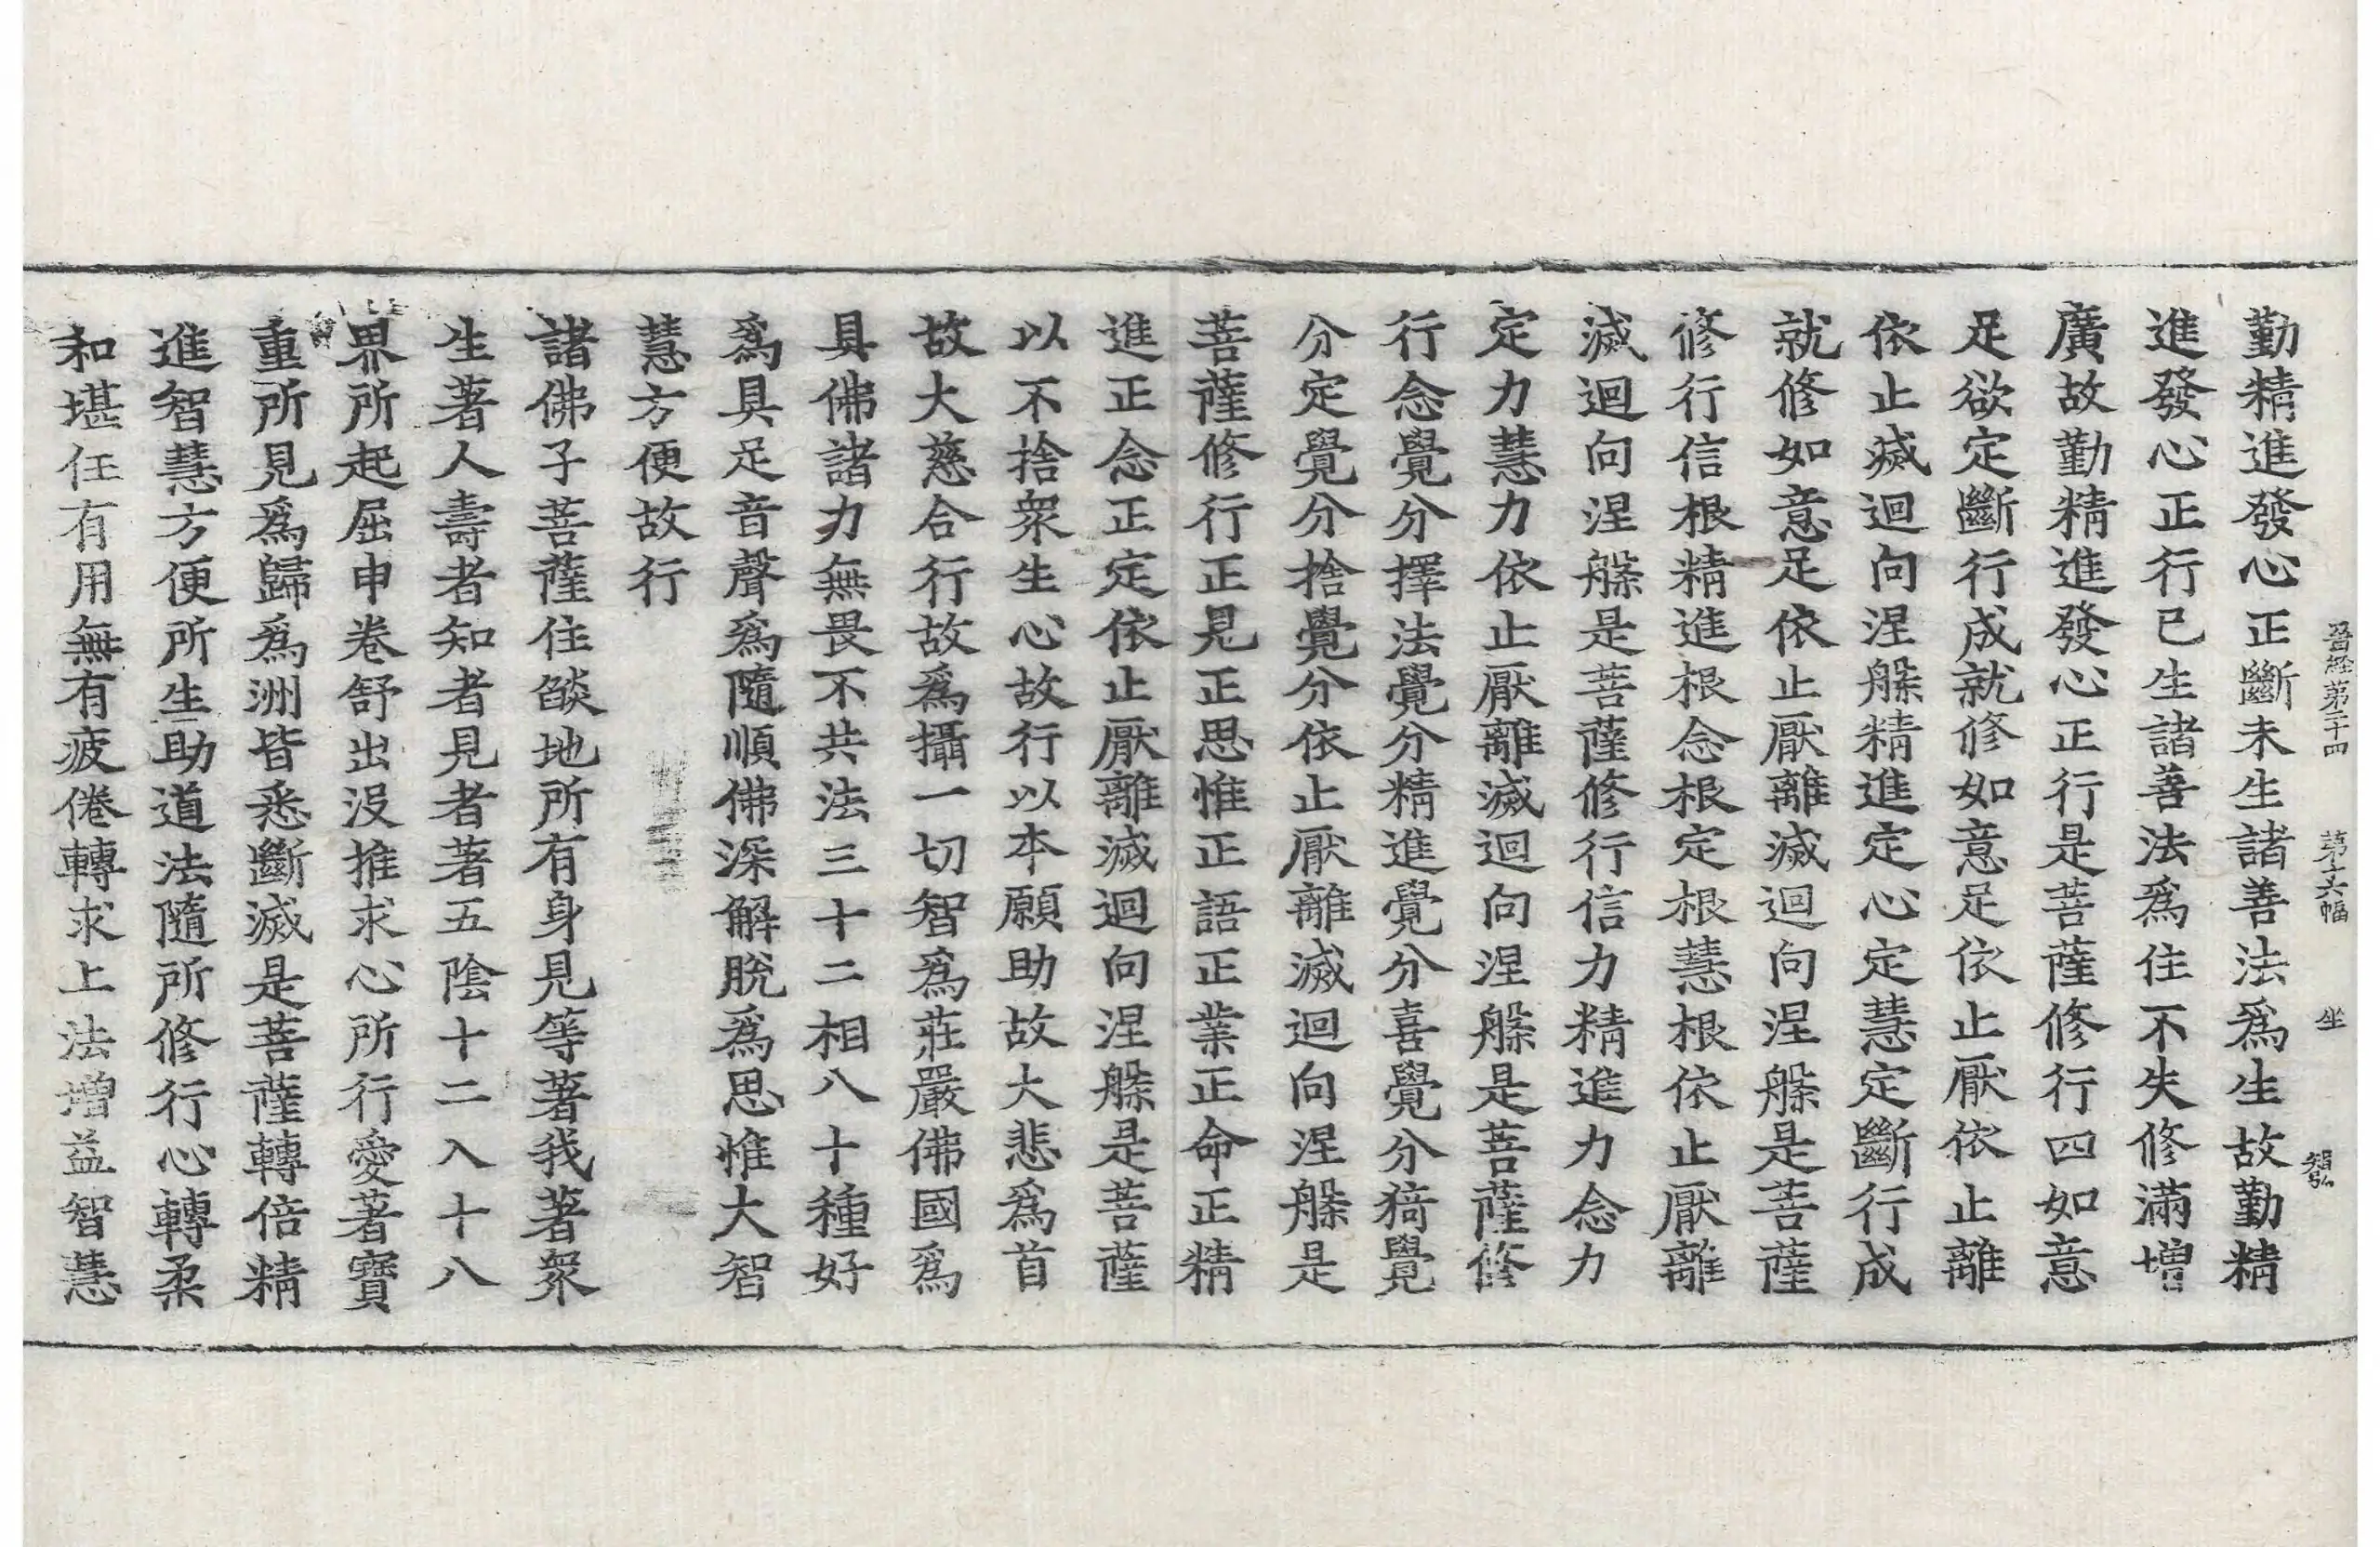 晉經第二十四　第十六幅　坐　智弘
勤精進發心正斷未生諸善法爲生故勤精
進發心正行已生諸善法爲住不失修滿增
廣故勤精進發心正行是菩薩修行四如意
足欲定斷行成就修如意足依止厭依止離
依止滅迴向涅槃精進定心定慧定斷行成
就修如意足依止厭離滅迴向涅槃是菩薩
修行信根精進根念根定根慧根依止厭離
滅迴向涅槃是菩薩修行信力精進力念力
定力慧力依止厭離滅迴向涅槃是菩薩修
行念覺分擇法覺分精進覺分喜覺分猗覺
分定覺分捨覺分依止厭離滅迴向涅槃是
菩薩修行正見正思惟正語正業正命正精
進正念正定依止厭離滅迴向涅槃是菩薩
以不捨衆生心故行以本願助故大悲爲首
故大慈合行故爲攝一切智爲莊嚴佛國爲
具佛諸力無畏不共法三十二相八十種好
爲具足音聲爲隨順佛深解脫爲思惟大智
慧方便故行
諸佛子菩薩住焰地所有身見等著我著衆
生著人壽者知者見者著五陰十二入十八
界所起屈申卷舒出沒推求心所行愛著寶
重所見爲歸爲洲皆悉斷滅是菩薩轉倍精
進智慧方便所生助道法隨所修行心轉柔
和堪任有用無有疲倦轉求上法增益智慧